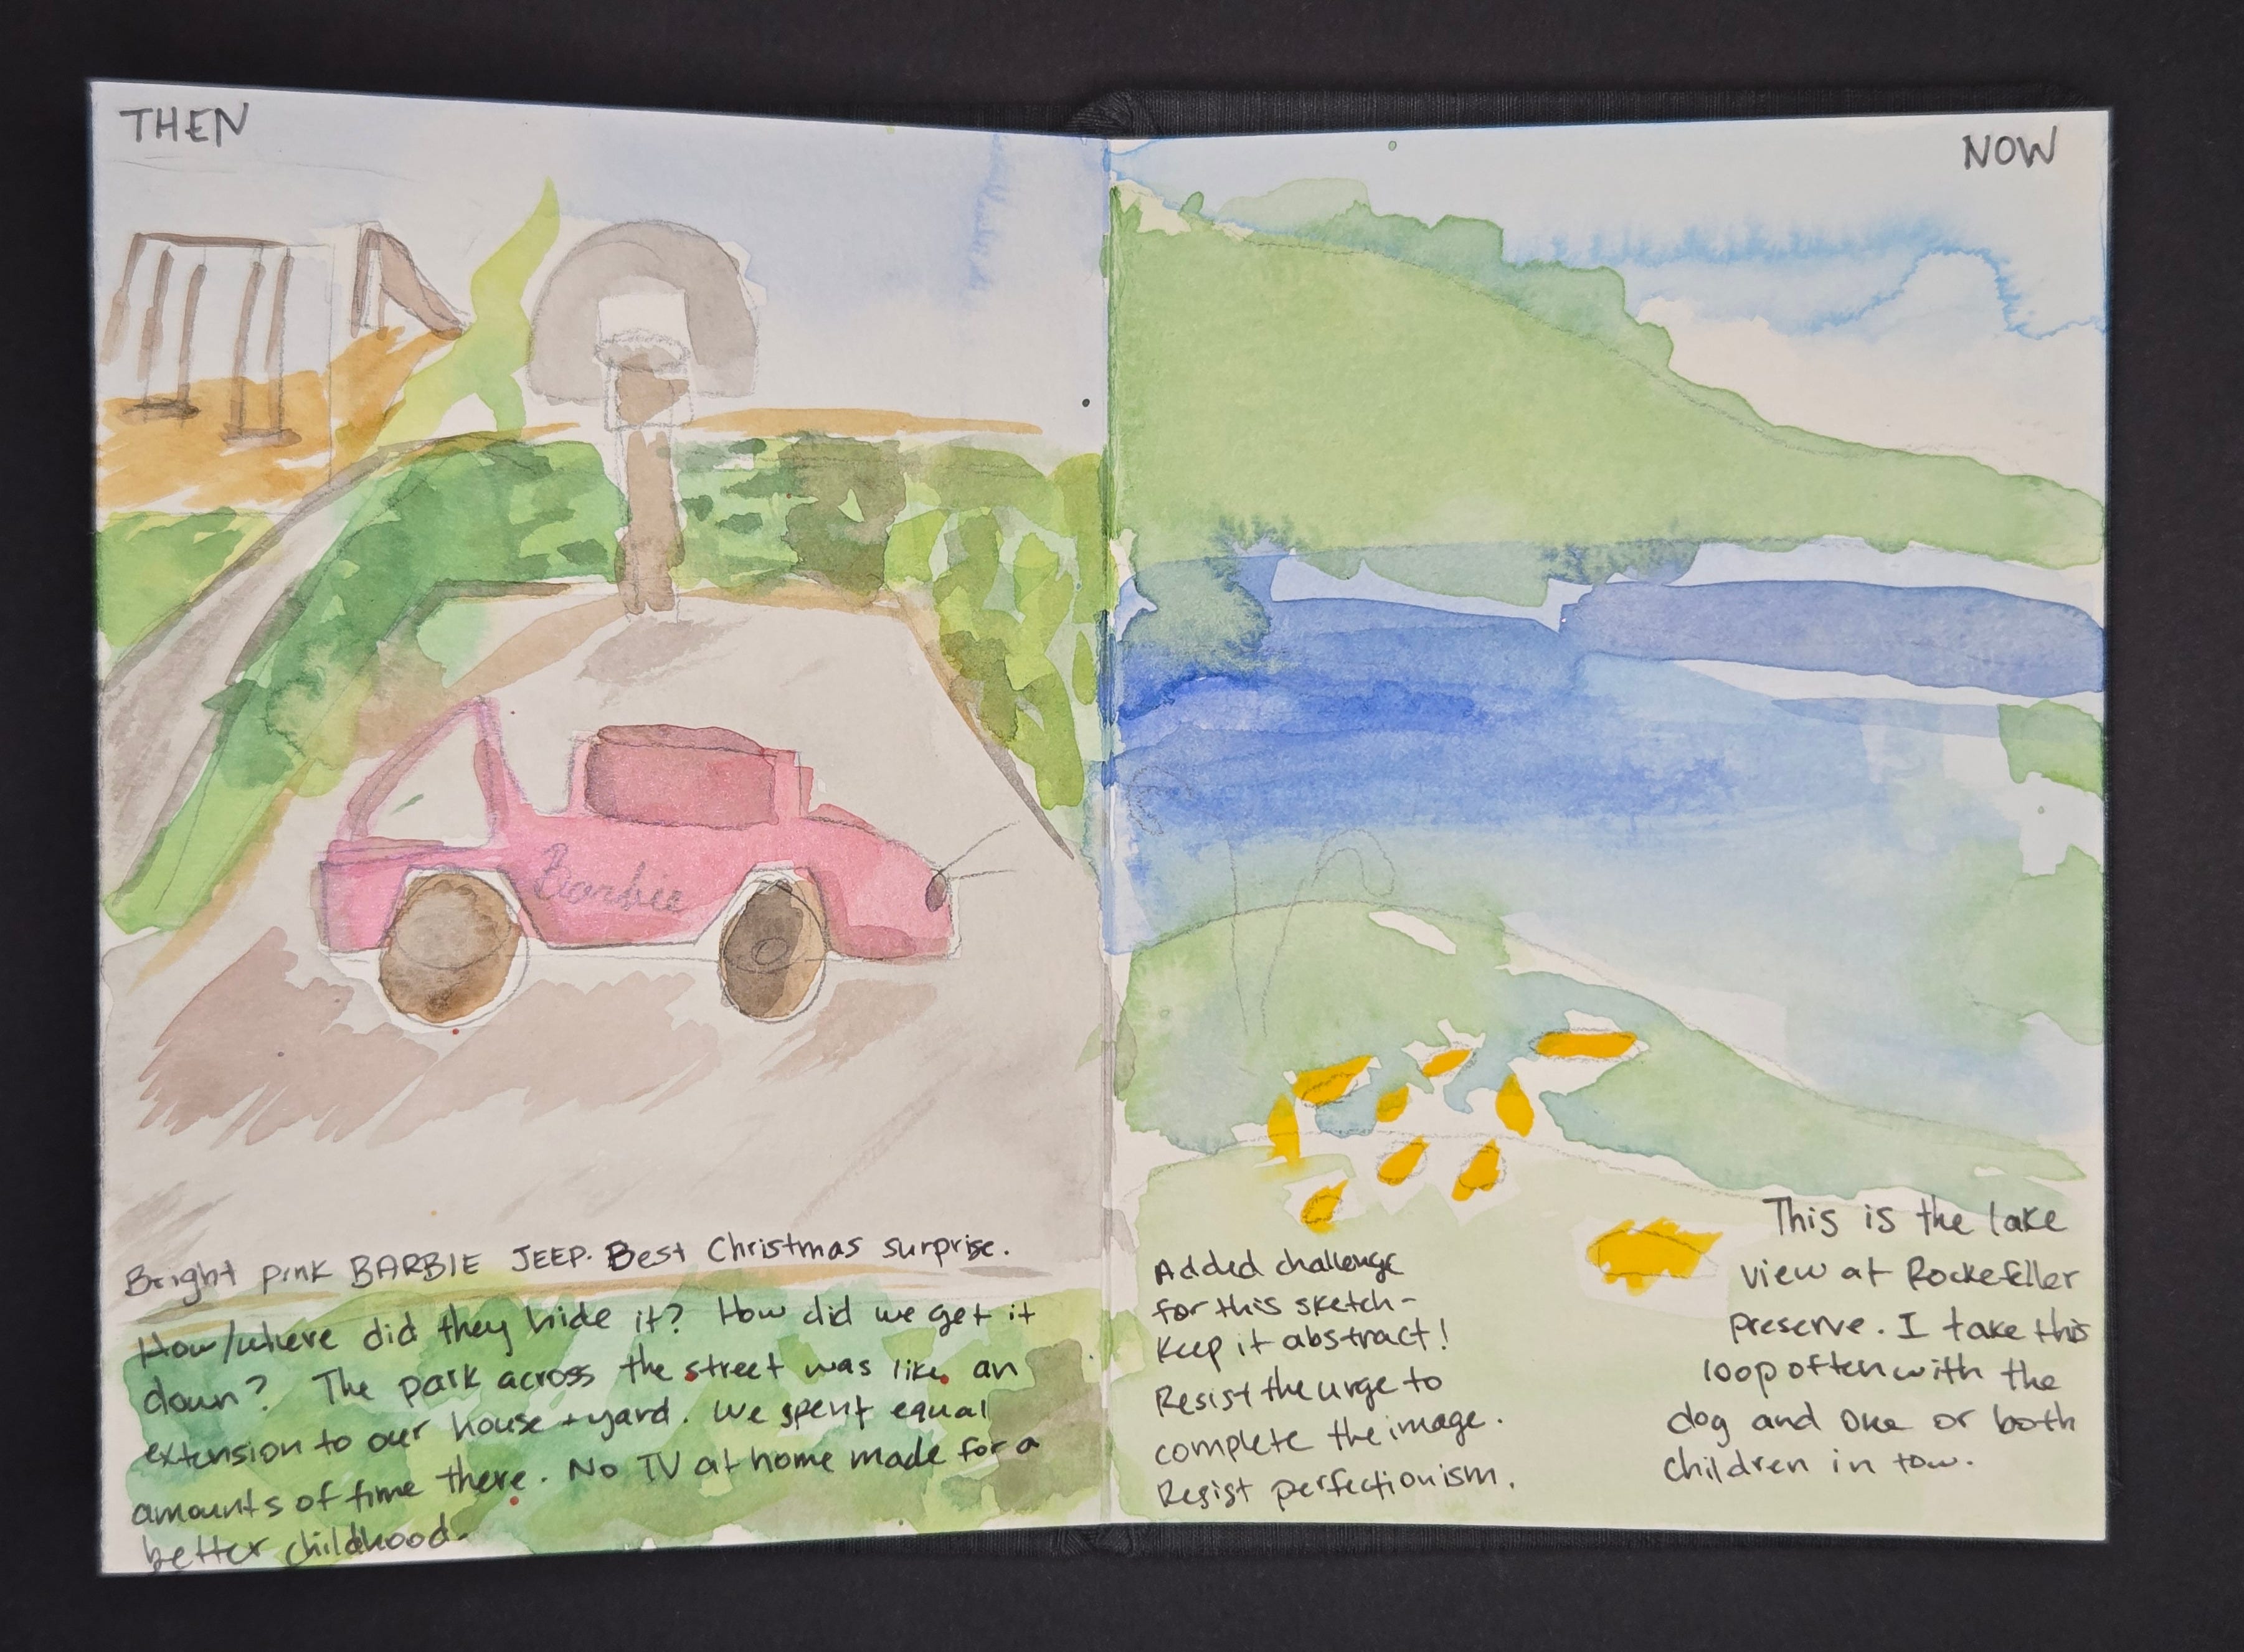 THEN
Barbie
Bright pink BARBIE JEEP. Best Christmas surprise.
How/where did they hide it? How did we get it
down? The park across the street was like an
extension to our house + yard. We spent equal
amounts of time there. No TV at home made for a
better childhood.
NOW
Added challenge
for this sketch-
Keep it abstract!
Resist the urge to
complete the image.
Resist perfectionism.
This is the lake
view at Rockefeller
preserve. I take this
loop often with the
dog and one or both
children in tow.